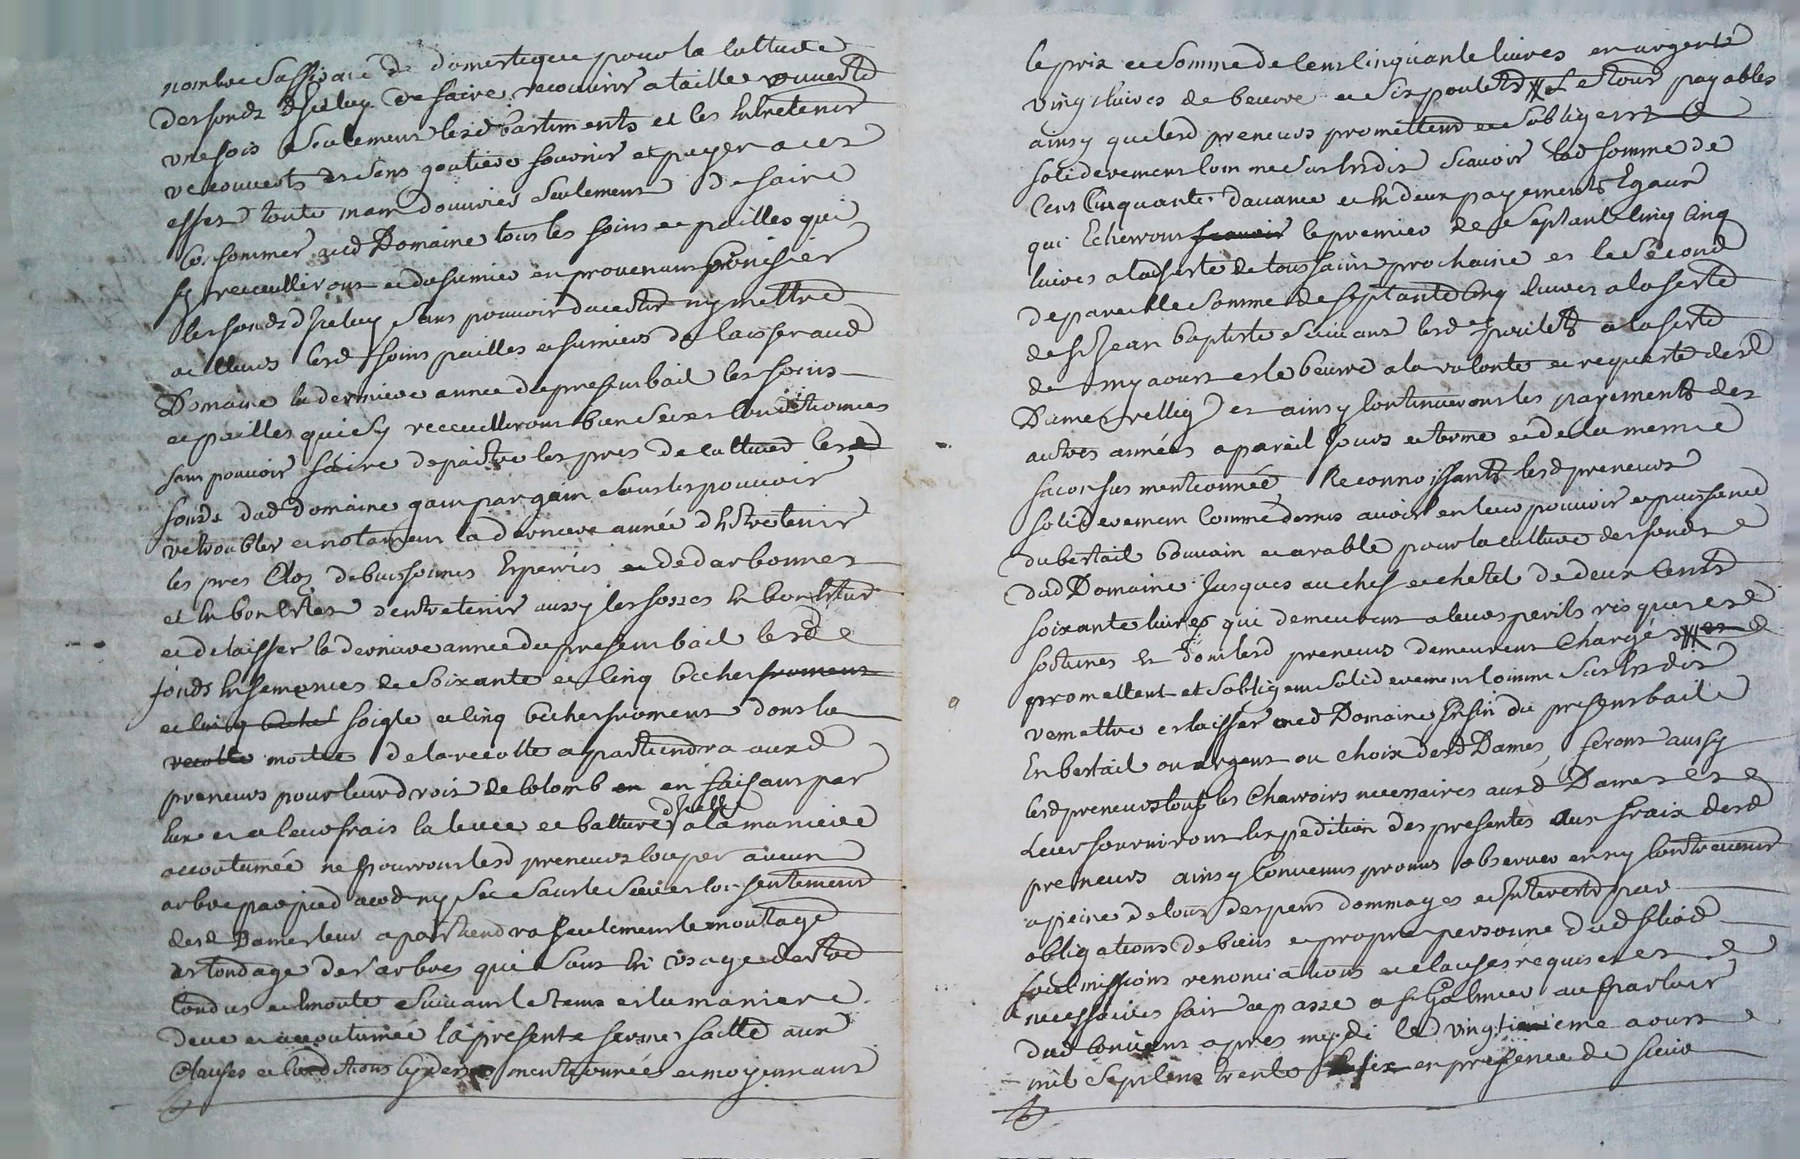 nombre suffisant de domestique pour la culture
des fonds d'iceluy de faire recouvrir a taille ouverte
une fois seulement lesd bastiments et les entretenir
recouverts et sens goutiere fournir et payer a cet
effet toute main douvrier seulement de faire
consommer aud Domaine tous les foins et pailles qui
sy recceuilliront et du fumier en provenant
les fonds d'iceluy sans pouvoir divertir ny mettre
ailleurs lesd foins pailles et fumiers de laisser aud
Domaine la derniere annee du present bail les foins
et pailles qui sy recceuilleront bien secs et conditionnes
sans pouvoir faire depaitre les pres de cultiver lesd
fonds dud domaine gain par gain sans les pouvoir
retroubler et notament la derniere année d'entretenir
les pres clos de buissonnes et de darbonnes
et en bon estat d'entretenir aussy les fosses en bon estat
et de laisser la derniere annee du present bail lesd
fonds ensemences de soixante et cinq bichet froment
et cinq bichet soigle et cinq bichet froment dont la
recolte moitié de la recolte apartiendra auxd
preneurs pour leur droit de colomb en en faisant par
eux et a leur frais la levee et batture d'icelle a la maniere
accoutumée ne pourront lesd preneurs couper aucun
arbre par pied verd ny sec sans le sceu et consentement
desd Dames leur apartiendra seulement le montage
et tondage des arbres qui sont en usage destre
tondus et emonté suivant le tems et la maniere
deue et accoutumée la presente ferme faitte aux
clauses et conditions cy dessus mentionnée et moyennant
le prix et somme de cent cinquante livres en argent
vingt livres de beurre et six poulets le tout payables
ainsy que lesd preneurs promettent et sobligent
solidairement lun ne sur lesdit scavoir lad somme de
cent cinquante d'avance et en deux payements Egaux
qui Echerront scavoir le premier de septante cinq
livres a la feste de toussaint prochaine et le second
de pareille somme de septante cinq livres a la feste
de St Jean baptiste suivant lesd poulets a la feste
de my aoust et le beurre a la volonte et requeste desd
Dames relligs et ainsy continueront les payements des
autres années a pareil jours et terme et de la meme
facon sus mentionnée Reconnoissants lesd preneurs
solidairement comme dessus avoir en leur pouvoir et puissance
du bestail bouvain et arable pour la culture des fonds
dud Domaine jusques au chef et chetel de deux cents
soixante livres qui demeurent a leurs perils risques et
fortunes et dont lesd preneurs demeurent chargé
promettent et sobligent solidairement comme sus est dit
remettre et laisser aud Domaine Enfin du present bail
En bestail ou argent au choix desd Dames, feront aussy
lesd preneurs tous les charroirs necessaires auxd Dames et
leur fourniront lexpedition des presentes aux fraix desd
preneurs ainsy convenus promis observer et ny contrevenir
a peine de tous despens dommages et interests par
obligations de biens et propre personne dud
soumissions renonciations et clauses requises et
necessaires fait et passé a St Galmier au parloir
dud couvent apres midi le vingtieme aoust
mil sept cens trente six en presence de sieur